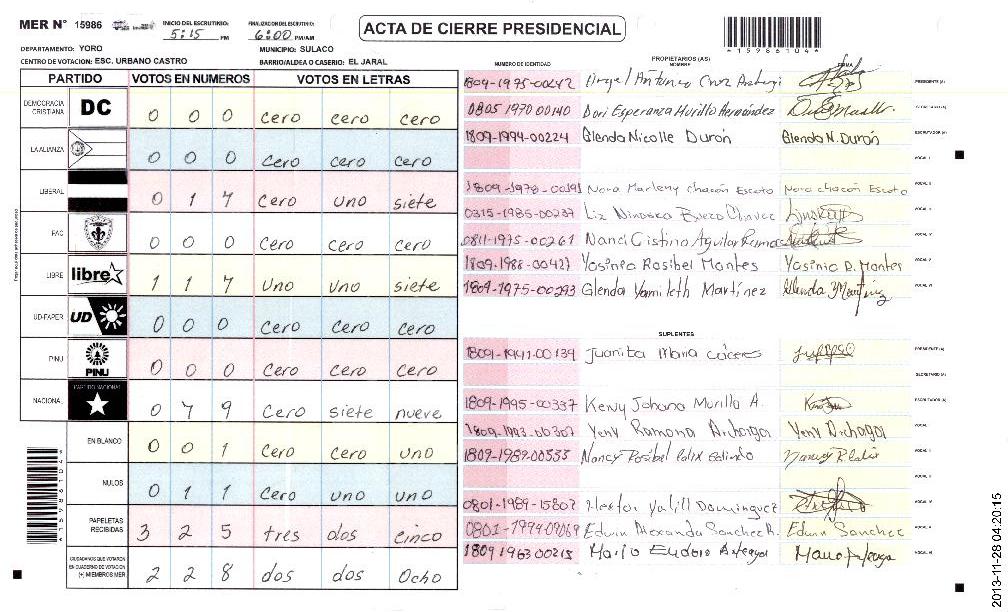 MER N° 15986 INICIO DEL ESCRUTINIO: 5:15 PM FINALIZACION DEL ESCRUTINIO: 6:00 PM/AM
ACTA DE CIERRE PRESIDENCIAL
*15986104*
DEPARTAMENTO: YORO MUNICIPIO: SULACO
CENTRO DE VOTACION: ESC. URBANO CASTRO BARRIO/ALDEA O CASERIO: EL JARAL
PARTIDO VOTOS EN NUMEROS VOTOS EN LETRAS
DEMOCRACIA CRISTIANA DC 0 0 0 cero cero cero
LA ALIANZA 0 0 0 cero cero cero
LIBERAL 0 1 7 cero uno siete
PAC 0 0 0 cero cero cero
LIBRE libre 1 1 7 uno uno siete
UD-FAPER UD 0 0 0 cero cero cero
PINU PINU 0 0 0 cero cero cero
NACIONAL PARTIDO NACIONAL 0 7 9 cero siete nueve
EN BLANCO 0 0 1 cero cero uno
NULOS 0 1 1 cero uno uno
PAPELETAS RECIBIDAS 3 2 5 tres dos cinco
CIUDADANOS QUE VOTARON EN CUADERNO DE VOTACION (+) MIEMBROS MER 2 2 8 dos dos ocho
PROPIETARIOS (AS)
NÚMERO DE IDENTIDAD NOMBRE FIRMA
1804-1975-00242 Angel Antonio Cruz PRESIDENTE (A)
0805 1970 00140 Dori Esperanza Murillo Hernández SECRETARIO (A)
1809-1994-00224 Glenda Nicolle Durón Glenda N. Durón ESCRUTADOR (A)
VOCAL I
1809-1978-00191 Nora Marleny chacón Escoto Nora chacón Escoto VOCAL II
0315-1985-00237 Liz VOCAL III
0811-1975-00261 Nanci Cistina Aguilar Ramos VOCAL IV
1809-1988-00427 Yosinia Rosibel Montes Yosinia R. Montes VOCAL V
1809-1975-00293 Glenda Yamileth Martínez Glenda Y Martínez VOCAL VI
SUPLENTES
1809-1991-00139 Juanita Maria cáceres PRESIDENTE (A)
SECRETARIO (A)
1809-1995-00337 Kensy Johana Murillo A. ESCRUTADOR (A)
1809-1993-00307 Yeny Ramona Archaga Yeny Archaga VOCAL I
1809-1989-00535 Nancy Rosibel VOCAL II
VOCAL III
0801-1989-15807 Hector Yalill Dominguez VOCAL IV
0801-1994-09069 Edwin Alexander Sanchez R. Edwin Sanchez VOCAL V
1809 1963 00215 Mario Eudoro Arteaga Mario Arteaga VOCAL VI
2013-11-28 04:20:15